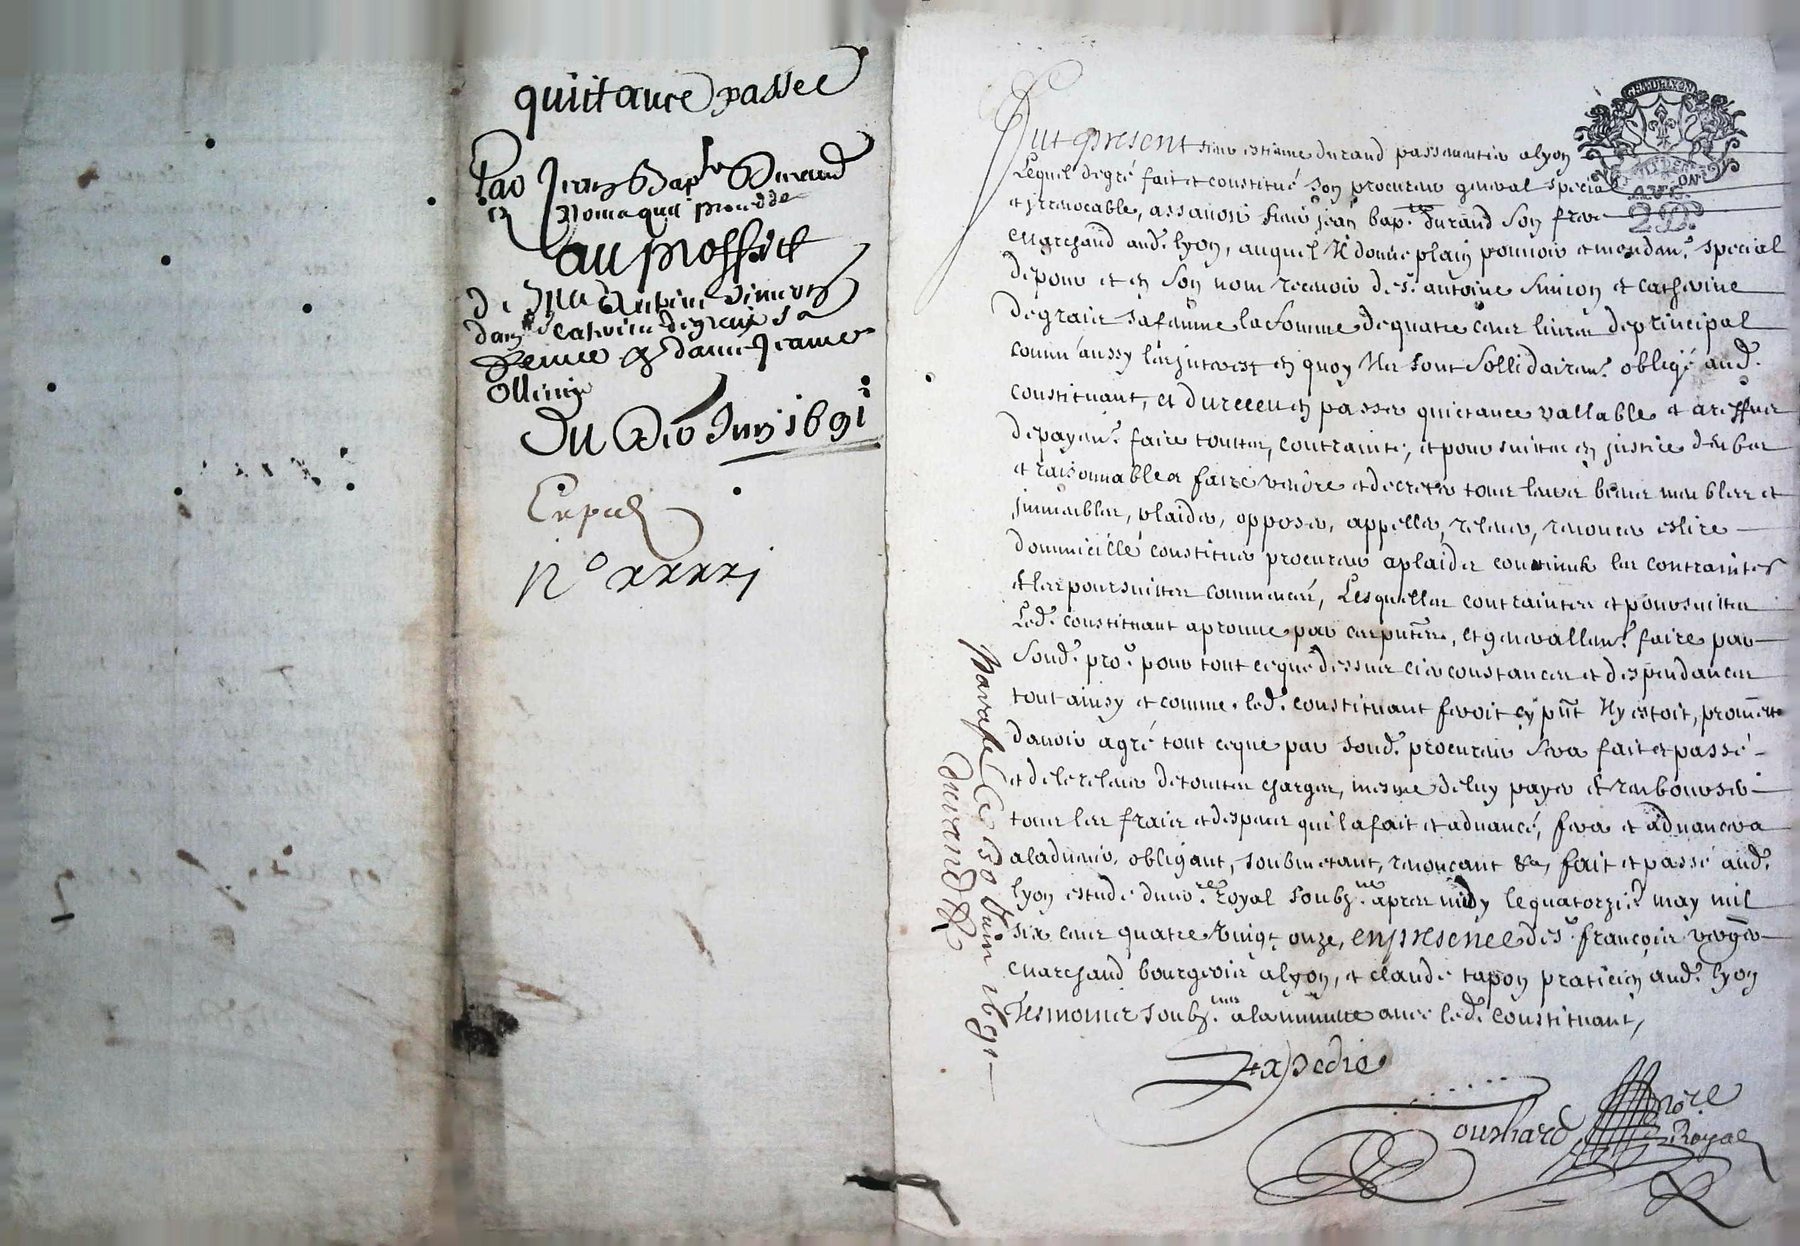 quittance passee
Par Jean Bapte Durand
au proffict
de Me Antoine Simeon
dame Catherine degraix sa
femme & dame Jeanne
Ollivier
Du Xve Juin 1691
Expedié
No xxxxj
GNALITE DE LYON
2 D.
Fut present sieur estienne durand passementier a lyon
Lequel de gré fait et constitué son procureur general special
et irrevocable, assavoir sieur jean bapte. durand son frere
marchand aud. lyon, auquel Il donne plain pouvoir et mandant. special
de pour et en son nom recevoir de sr. antoine simion et catherine
degraix sa famme la somme de quatre cens livres de principal
comm' aussy les interest en quoy Ils sont sollidairemt. obligé aud.
constituant, et du receu en passer quictance vallable et a reffus
de payemt. faire touttes contraintes, et poursuittes en justice deubes
et raisonnables faire vendre et decreter tous leurs biens meubles et
immeubles, plaider, opposer, appeller, relever, renoncer eslire
domicille constituer procureur a plaider continuer les contraintes
et les poursuittes commencées, Lesquelles contraintes et poursuittes
Led. constituant aprouve par exprez, et generallemt. faire par
sond. pror. pour tout ce que dessus circonstances et despendances
tout ainsy et comme led. constituant feroit sy pnt Il y estoit, promett
d'avoir agré tout ce que par sond. procureur sera fait et passé
et de le relever de touttes charges, mesme de luy payer et rembourser
tous les fraix et despens qu'il a fait et advancé, fera et advancera
a l'advenir, obligant, soubmetant, renonçant &a, fait et passé aud.
lyon estude du nore. Royal soubzne. apres midy le quatorzie. may mil
six cens quatre vingt onze, en presence de sr. françois verger
marchand bourgeois a lyon, et claude tapon praticien aud. lyon
tesmoins soubznes. a la minutte avec led. constituant,
Expedié
oushard nore Royal
Ce 15e Juin 1691
durand